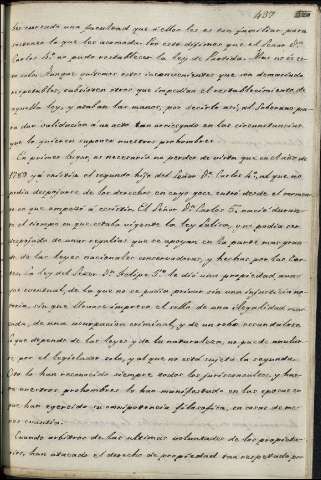 437
les curcada una facultad que á ellos les es tan familiar para
interesa lo que les acomoda. Por esto digimos que el Señor Dⁿ
Carlos 4º no pudo restablecer la ley de Partida. Mas no és es-
to solo. Aunque quitemos estos inconvenientes que son demasiado
respetables, subsisten otros que impedian el restablecimiento de
aquella ley, y ataban las manos, por decirlo asi, al Soberano pa-
ra dar validacion a un acto tan arriesgado en las circunstancias
que lo quieren suponer nuestros prohombres.
En primer lugar, es necesario no perder de vista que en el año de
1789 ya existia el segundo hijo del Señor Dⁿ Carlos 4º, al que no
podia despojarse de los derechos en cuyo goce entró desde el momen-
to en que empezó á existir. El Señor Dⁿ Carlos 5º nació duran-
te el tiempo en que estaba vigente la ley Salica, y no podia ser
despojado de unas regalias que se apoyan en la parte mas gran-
de de las leyes nacionales conservadoras, y hechas por las Cor-
tes. La ley del Señor Dⁿ Felipe 5º le dió una propiedad, aunq.
fue eventual, de la que no se podia privar sin una injusticia no-
toria, sin que llevase impreso el sello de una ilegalidad mar-
cada, de una usurpacion criminal, y de un robo escandaloso.
Lo que depende de las leyes y de la naturaleza, no puede anular-
se por el legislador solo, y al que no está sujeta la segunda.
Esto lo han reconocido siempre todos los jurisconsultos, y has-
ta nuestros prohombres lo han manifestado en las epocas en
que han egercido su omnipotencia filosofica, en cosas de me-
nos cuantia.
Cuando arbitros de las ultimas voluntades de los propieta-
rios, han atacado el derecho de propiedad tan respetado por